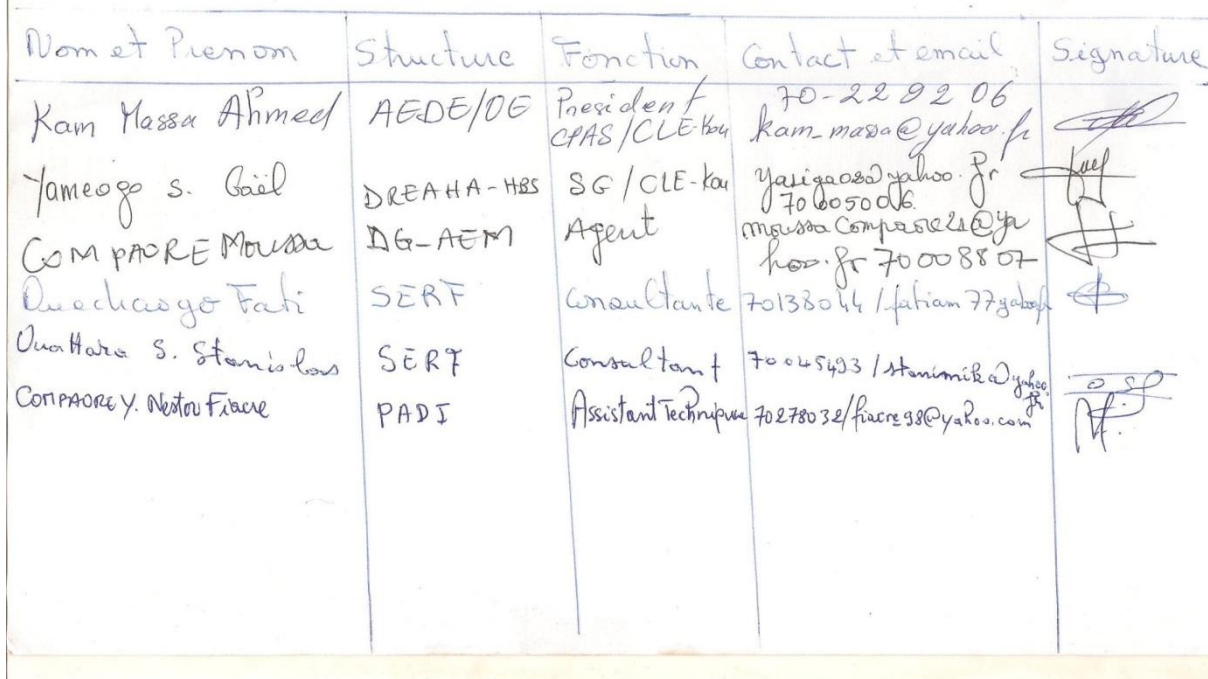 Nom et Prenom Structure Fonction Contact et email Signature
Kam Massa Ahmed AEDE/OE President CPAS/CLE-Kou 70-22 92 06 kam_massa@yahoo.fr
Yameogo S. Gaël DREAHA-HBS SG/CLE-Kou yahoo.fr
COMPAORE Moussa DG-AEM Agent moussacompaore21@yahoo.fr 70008807
Fati SERF Consultante 70138044 / fatiam77yahoofr
Ouattara S. Stanislas SERF Consultant 70045493 / stanimik@yahoo.fr
COMPAORE Y. Nestor Fiacre PADI Assistant Technique 70278032/fiacre98@yahoo.com